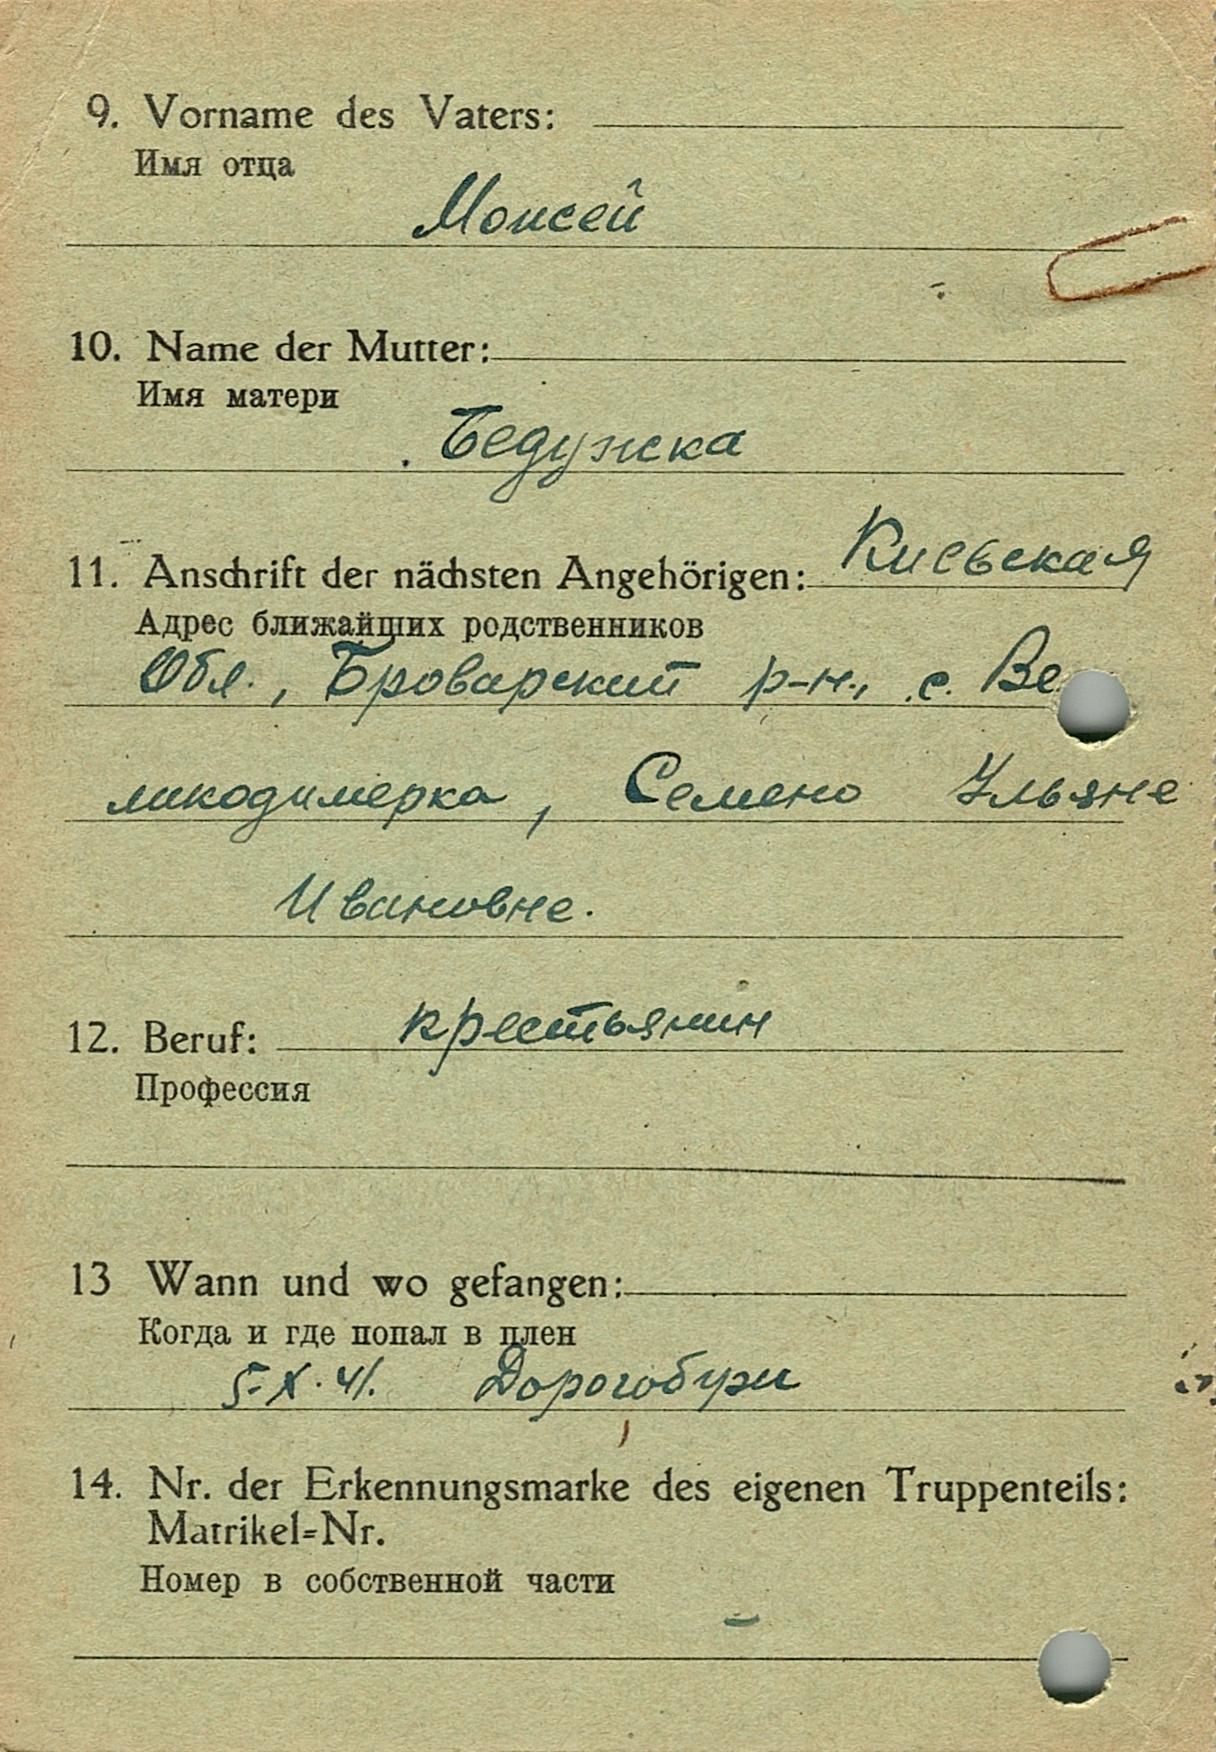 9. Vorname des Vaters:
Имя отца
Моисей
10. Name der Mutter:
Имя матери
Бедужка
Киевская
11. Anschrift der nächsten Angehörigen:
Адрес ближайших родственников
Обл., Броварский р-н., с. Ве
ликодимерка, Семено Ульяне
Ивановне.
12. Beruf: крестьянин
Профессия
13 Wann und wo gefangen:
Когда и где попал в плен
5-X.41. Дорогобуж
14. Nr. der Erkennungsmarke des eigenen Truppenteils:
Matrikel=Nr.
Номер в собственной части
–